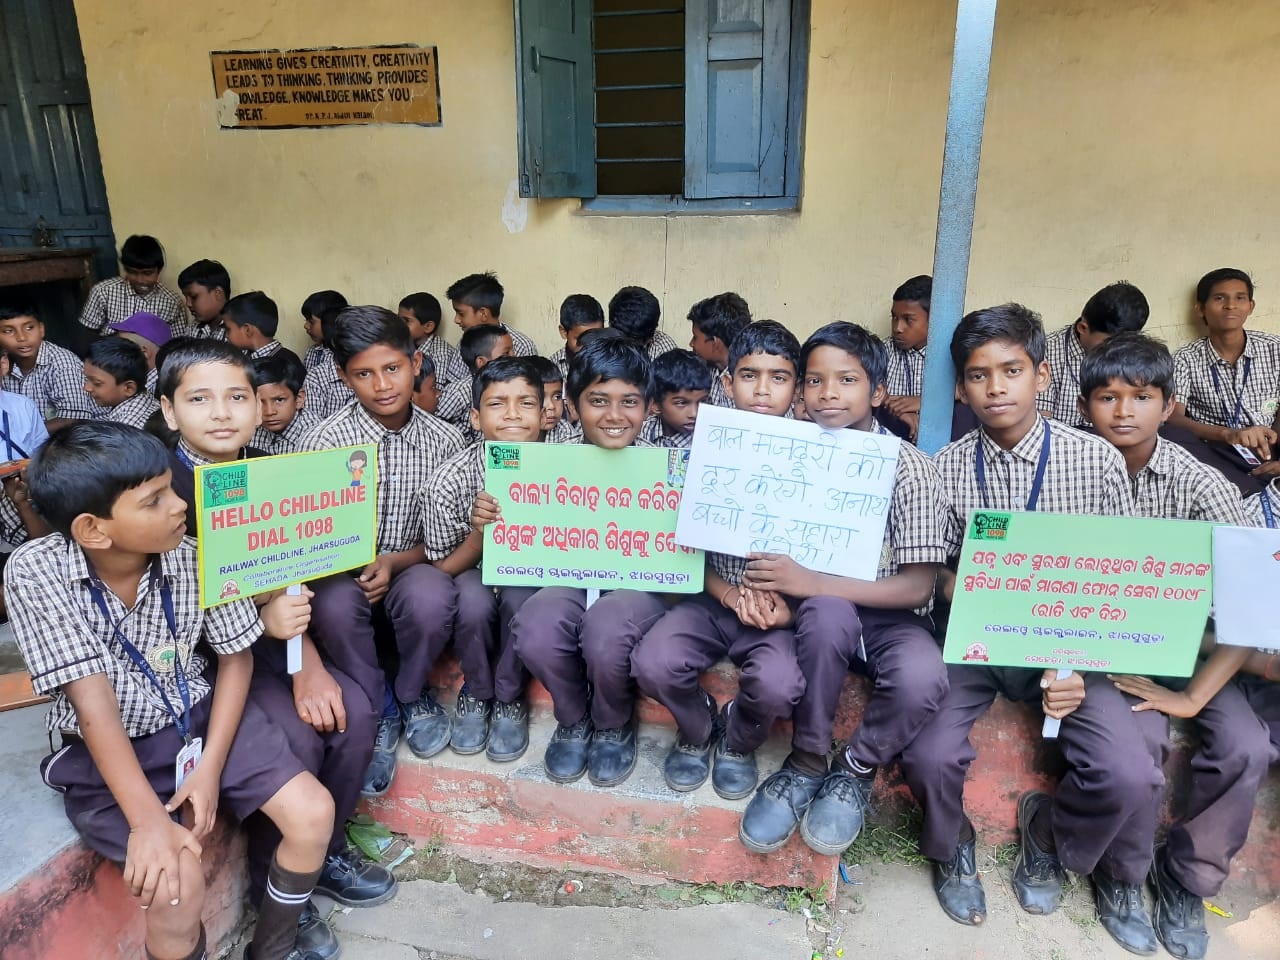 LEARNING GIVES CREATIVITY, CREATIVITY
LEADS TO THINKING, THINKING PROVIDES
KNOWLEDGE, KNOWLEDGE MAKES YOU
GREAT.
DR. A.P.J. Abdul Kalam
CHILD
LINE
1098
HELLO CHILDLINE
DIAL 1098
RAILWAY CHILDLINE, JHARSUGUDA
Collaborative Organisation
SEWADA, Jharsuguda
CHILD
LINE
1098
ବାଲ୍ୟ ବିବାହ ବନ୍ଦ କରିବା
ଶିଶୁଙ୍କ ଅଧିକାର ଶିଶୁଙ୍କୁ ଦେବା
ରେଲୱେ ଚାଇଲ୍ଡଲାଇନ, ଝାରସୁଗୁଡ଼ା
बाल मजदूरी को
दूर करेंगे, अनाथ
बच्चों के सहारा
बनेंगे।
CHILD
LINE
1098
ଯତ୍ନ ଏବଂ ସୁରକ୍ଷା ଲୋଡୁଥିବା ଶିଶୁ ମାନଙ୍କ
ସୁବିଧା ପାଇଁ ମାଗଣା ଫୋନ୍ ସେବା ୧୦୯୮
(ରାତି ଏବଂ ଦିନ)
ରେଲୱେ ଚାଇଲ୍ଡଲାଇନ, ଝାରସୁଗୁଡ଼ା
ଝାରସୁଗୁଡ଼ା